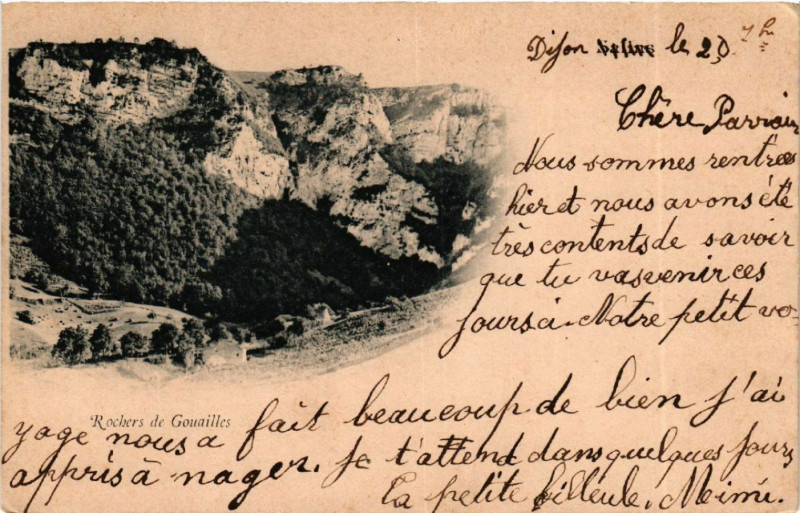 Dijon le 20
Chère Parrain
Nous sommes rentrées
hier et nous avons été
très contents de savoir
que tu vas venir ces
jours ci. Notre petit vo-
yage nous a fait beaucoup de bien j'ai
appris à nager. Je t'attend dans quelques jours
Ta petite filleule. Mimi.
Rochers de Gouailles